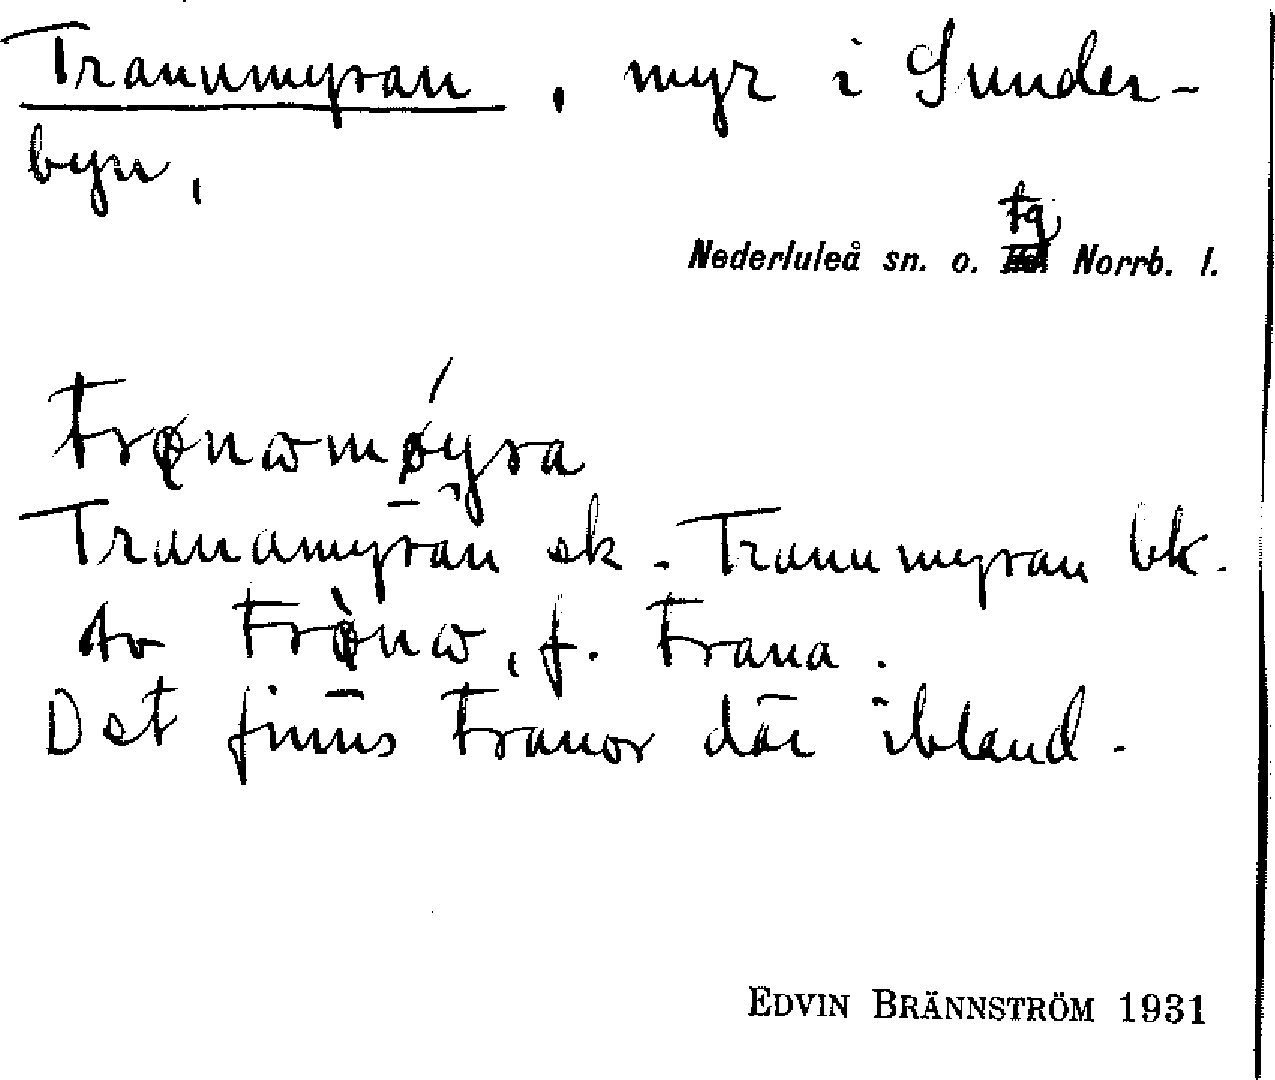 Tranumyran, myr i Sunder-
byn,
tg
Nederluleå sn. o. Norrb. l.
Tranamyran sk. Tranumyran bk.
Av trø̀nω, f. trana.
Det finns tranor där ibland.
EDVIN BRÄNNSTRÖM 1931